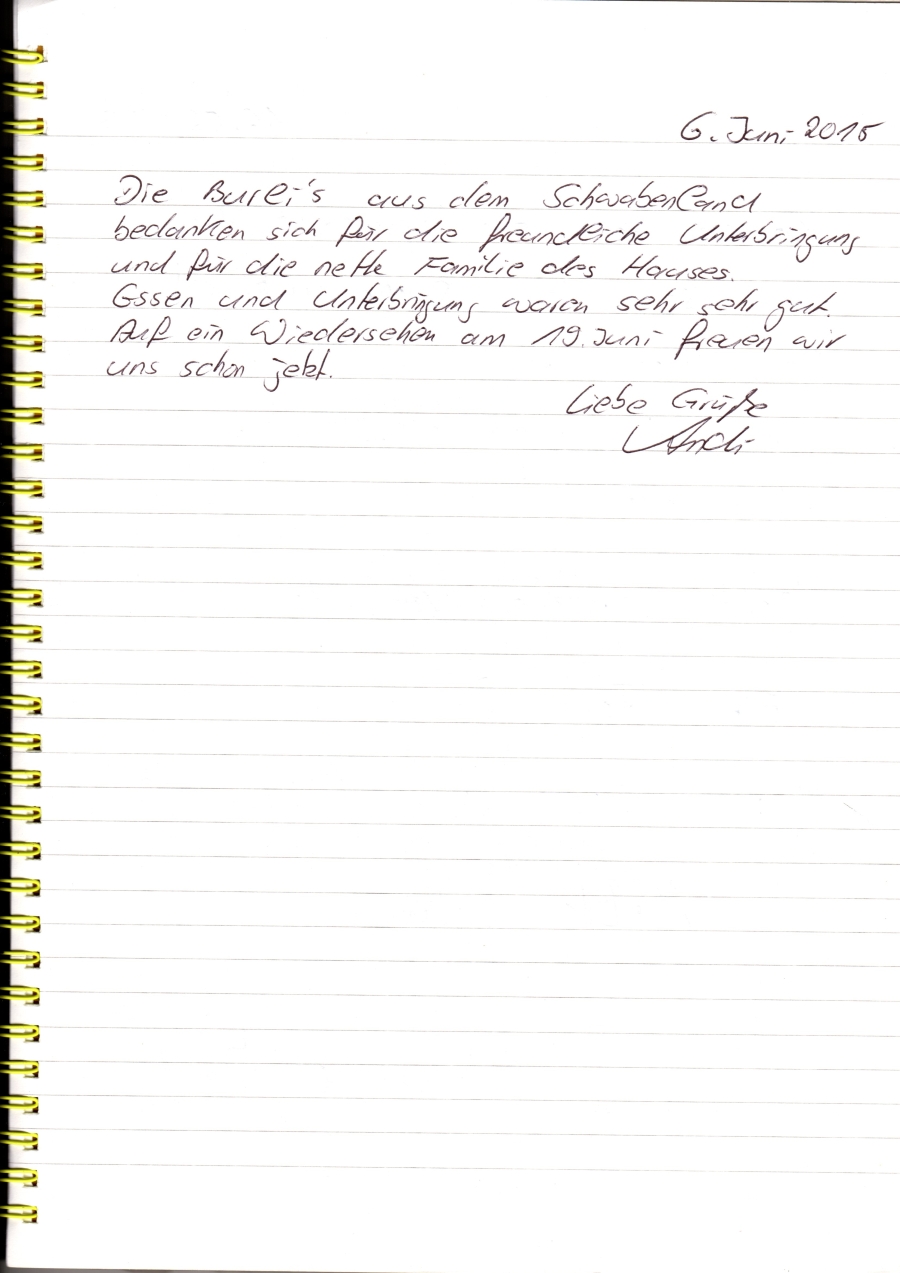 6. Juni 2015
Die Burei's aus dem Schwabenland
bedanken sich für die freundliche Unterbringung
und für die nette Familie des Hauses.
Essen und Unterbringung waren sehr sehr gut.
Auf ein Wiedersehen am 19. Juni freuen wir
uns schon jetzt.
Liebe Grüße
Andi